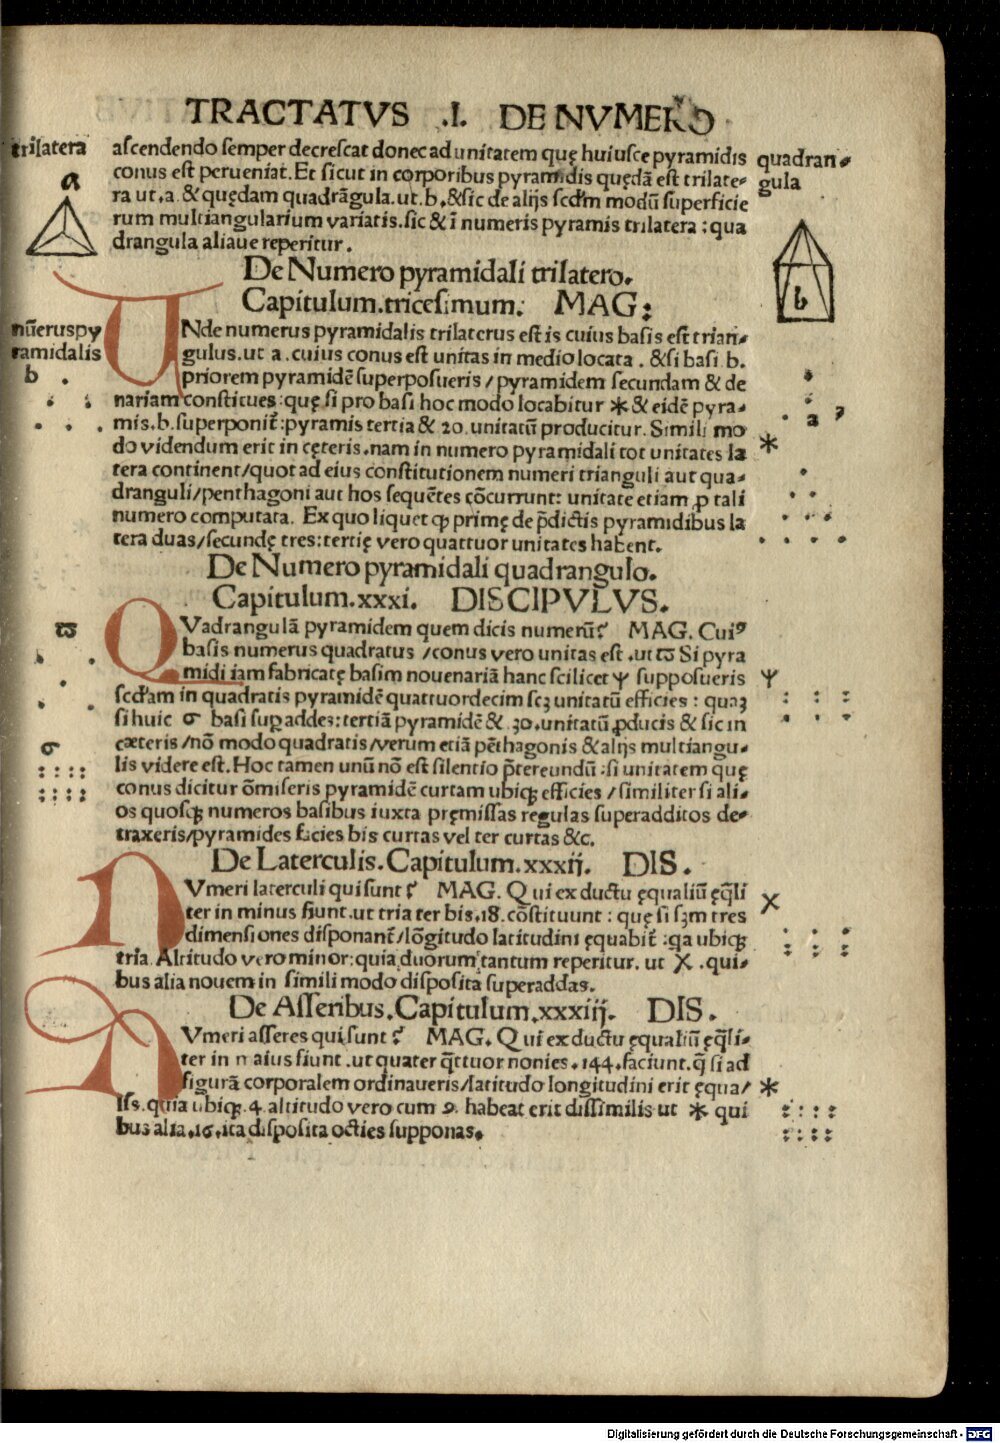 TRACTATVS .I. DE NVMERO
trilatera
a
quadran-
gula
b
ascendendo semper decrescat donec ad unitatem quę huiusce pyramidis
conus est perueniat. Et sicut in corporibus pyramidis quędā est trilate-
ra ut .a. & quędam quadrāgula. ut. b. & sic de alijs scd̄m modū superficie
rum multiangularium variatis. sic & ī numeris pyramis trilatera : qua
drangula aliaue reperitur .
De Numero pyramidali trilatero.
Capitulum.tricesimum: MAG:
nūeruspy
ramidalis
b
VNde numerus pyramidalis trilaterus est is cuius basis est trian-
gulus. ut a . cuius conus est unitas in medio locata . & si basi b.
priorem pyramidē superposueris / pyramidem secundam & de
nariam constitues : quę si pro basi hoc modo locabitur * & eidē pyra-
a
mis. b. superponit̄ : pyramis tertia & 20. unitatū producitur. Simili mo
*
do videndum erit in cęteris. nam in numero pyramidali tot unitates la
tera continent / quot ad eius constitutionem numeri trianguli aut qua-
dranguli / penthagoni aut hos sequētes cōcurrunt: unitate etiam ꝓ tali
numero computata. Ex quo liquet ꝙ primę de p̄dictis pyramidibus la
tera duas / secundę tres : tertię vero quattuor unitates habent.
De Numero pyramidali quadrangulo.
Capitulum.xxxi. DISCIPVLVS.
QVadrangulā pyramidem quem dicis numerū? MAG. Cuiꝰ
basis numerus quadratus / conus vero unitas est . ut ϖ Si pyra
ϖ
midi iam fabricatę basim nouenariā hanc scilicet Ψ supposueris
Ψ
scd̄am in quadratis pyramidē quattuordecim scꝫ unitatū efficies : quaꝫ
si huic σ basi suꝑ addes : tertiā pyramidē & 30. unitatū ꝓducis & sic in
σ
cæteris / nō modo quadratis / verum etiā pēthagonis & alijs multiangu-
lis videre est. Hoc tamen unū nō est silentio p̄tereundū : si unitatem quę
conus dicitur ōmiseris pyramidē curtam ubiqꝫ efficies / similiter si ali-
os quosqꝫ numeros basibus iuxta pręmissas regulas superadditos de-
traxeris / pyramides facies bis curtas vel ter curtas &c.
De Laterculis. Capitulum.xxxij. DIS .
NVmeri laterculi qui sunt? MAG. Qui ex ductu ęqualiū ęq̄li
ter in minus fiunt. ut tria ter bis. 18. cōstituunt : quę si sꝫm tres
X
dimensiones disponant̄ / lōgitudo latitudini ęquabit̄ : qa ubiqꝫ
tria. Altitudo vero minor : quia duorum tantum reperitur. ut X . qui-
bus alia nouem in simili modo disposita superaddas.
De Asseribus. Capitulum.xxxiij. DIS .
NVmeri asseres qui sunt? MAG. Qui ex ductu ęqualiū ęq̄li-
ter in maius fiunt . ut quater q̄ttuor nonies . 144. faciunt. q̄ si ad
figurā corporalem ordinaueris / latitudo longitudini erit ęqua/
*
lis. quia ubiqꝫ. 4. altitudo vero cum 9. habeat erit dissimilis ut * qui
bus alia .16. ita disposita octies supponas.
Digitalisierung gefördert durch die Deutsche Forschungsgemeinschaft - DFG